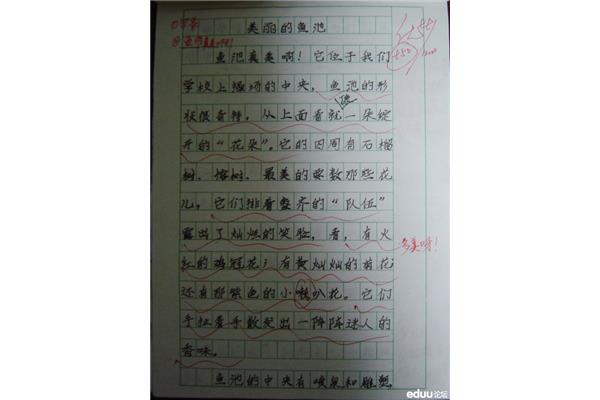 美丽的鱼池
鱼池真美啊！它位于我们
学校上操场的中央，鱼池的形
状很奇特，从上面看就像一朵绽
开的“花朵”。它的四周有石榴
树、榕树，最美的要数那些花
儿，它们排着整齐的“队伍”
露出了灿烂的笑脸，看，有火
红的鸡冠花；有黄灿灿的菊花
还有那紫色的小喇叭花。它们
手拉着手散发出一阵阵迷人的
香味。
鱼池的中央有喷泉和雕塑，
多美呀！
eduu论坛